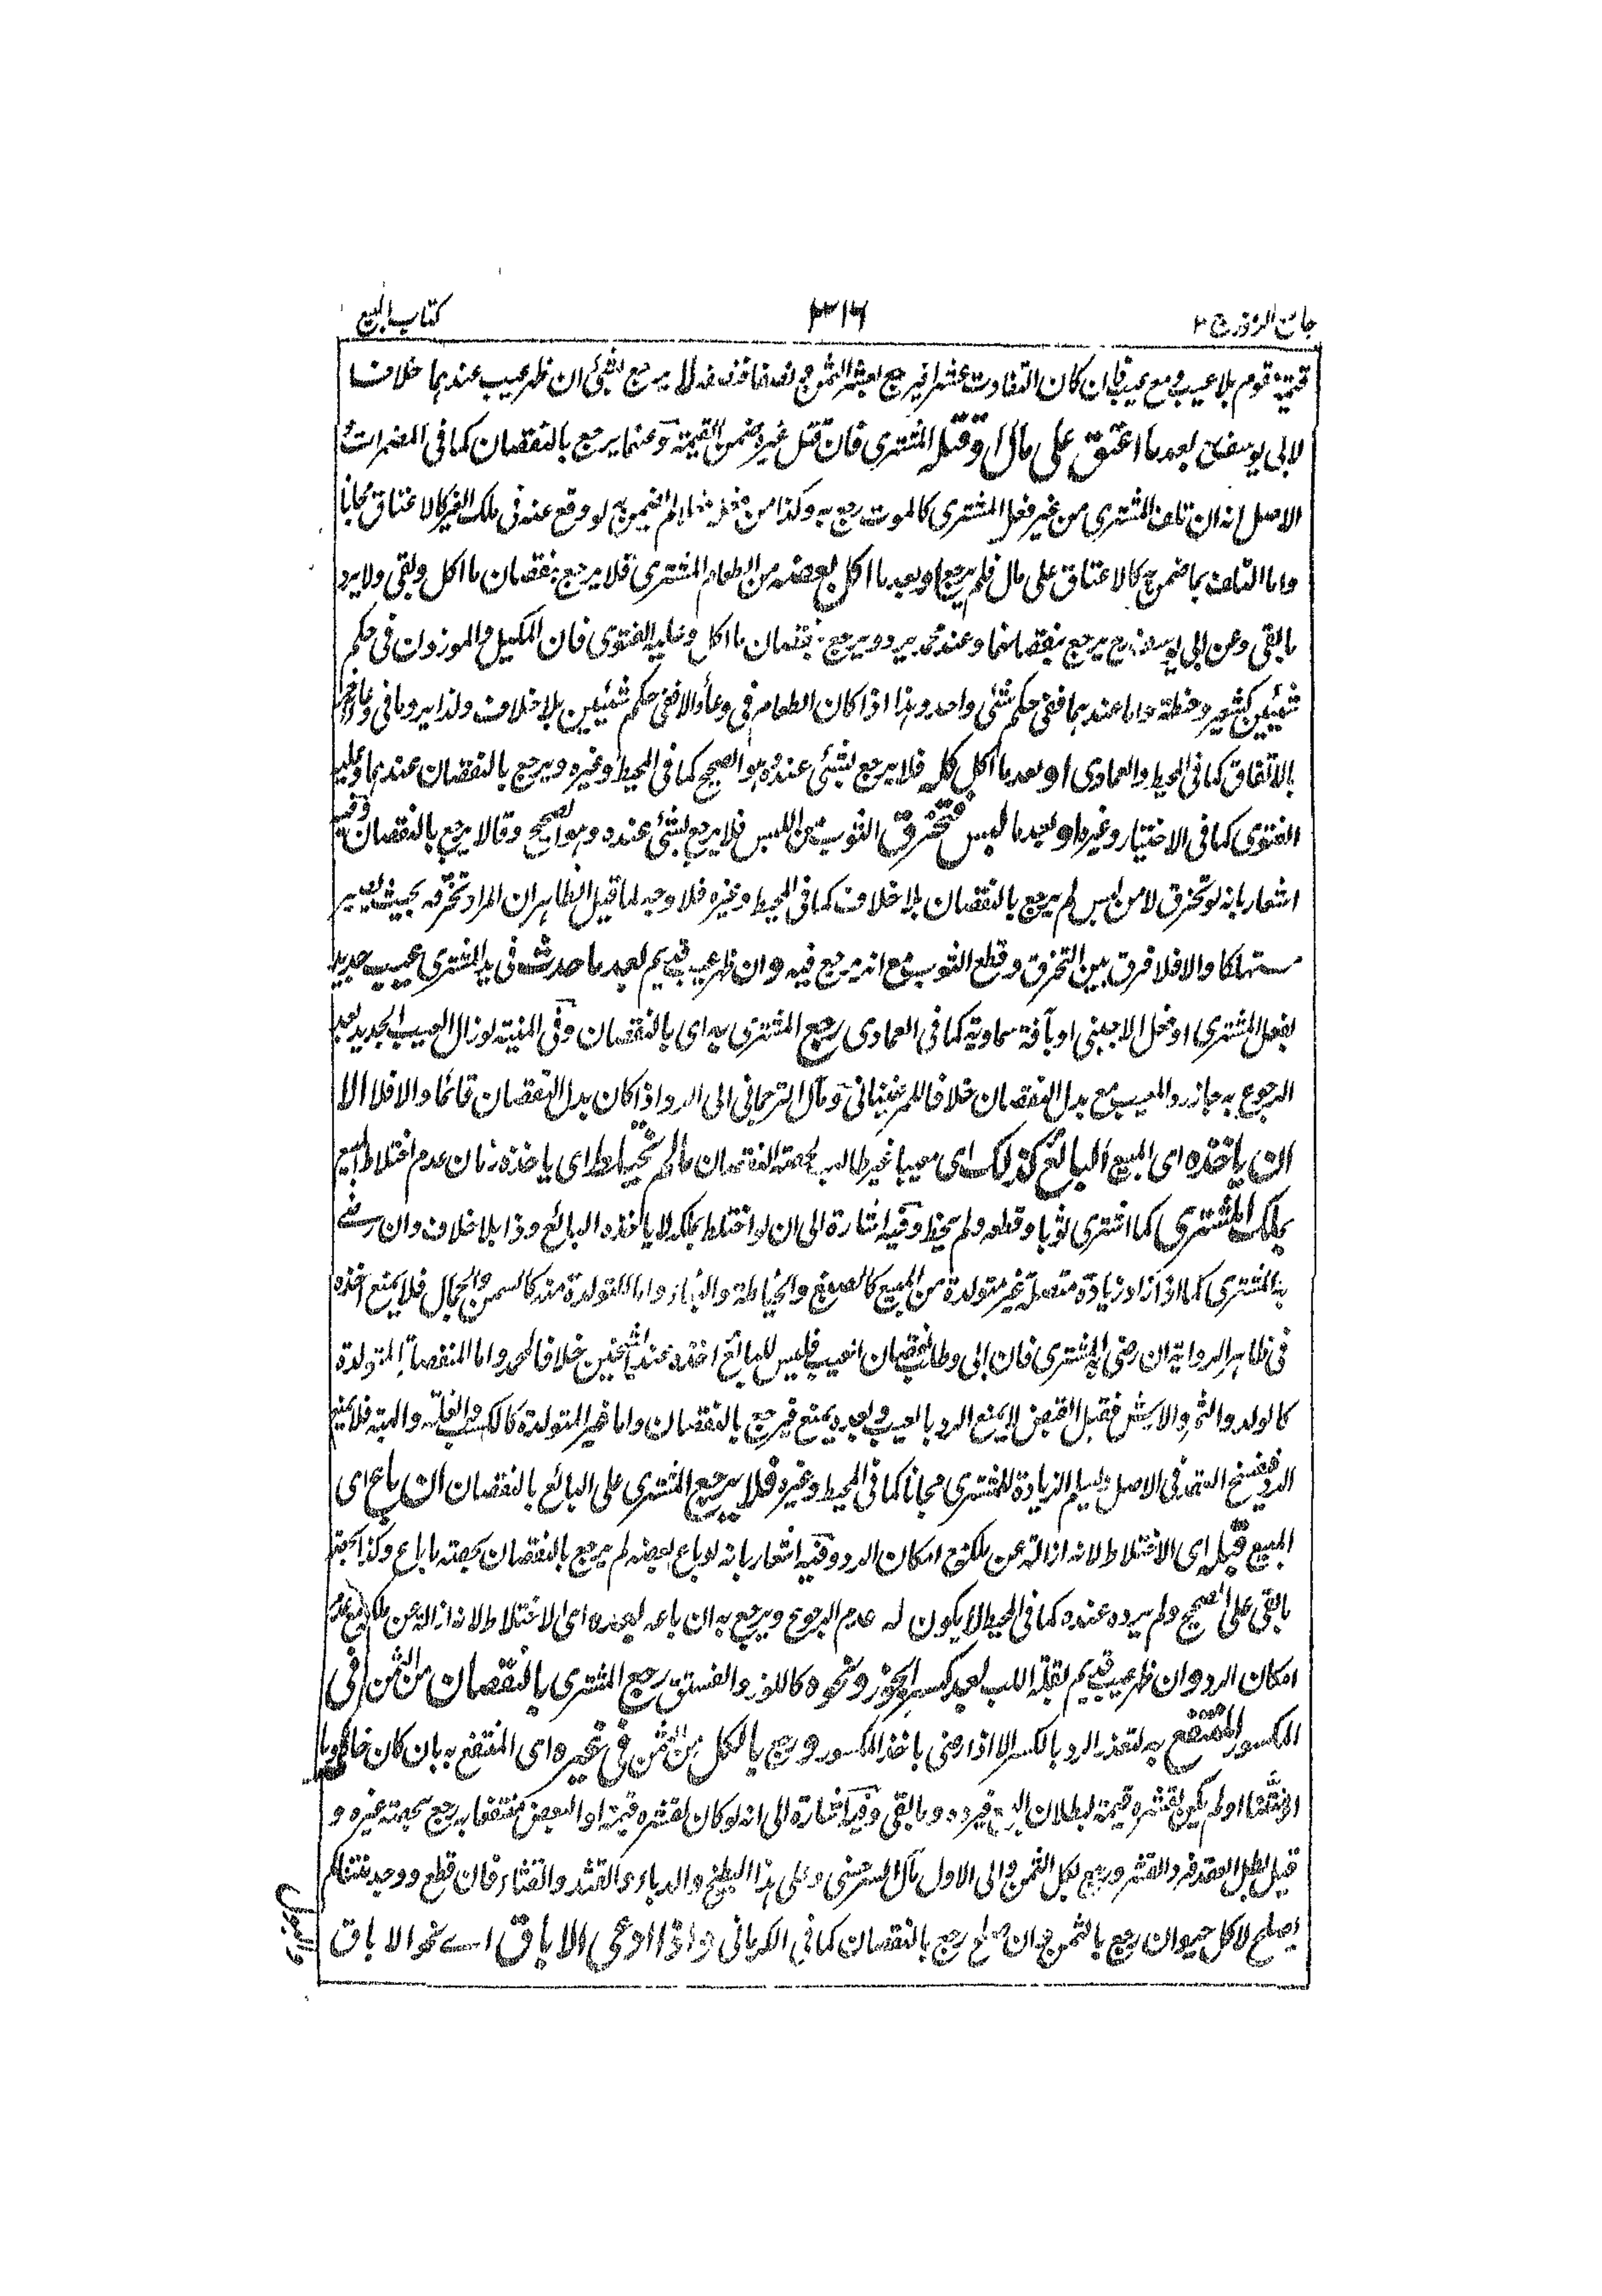 جامع الرموز ج ٢
٣١٦
كتاب البيع
قيمته قوم بلا عيب ومع عيب فان كان التفاوت عشرا فيرجع بعشر الثمن فلا يرجع بشئ ان ظهر عيب عندهما خلافا
لابى يوسف بعد ما اعتق على مال او قتله المشترى فان قتل غيره ضمن القيمة وعنهما يرجع بالنقصان كما فى المضمرات و
الاصل انه ان تلف المشترى من غير فعل المشترى كالموت رجع به وكذا من لو وقع عنه فى ملك الغير كالاعتاق مجانا
واما التلف بما ضمن به كالاعتاق على مال فلم يرجع او بعد ما اكل بعضه من الطعام المشترى فلا يرجع بنقصان ما اكل وبقى ولا يرد
ما بقى وعن ابى يوسف رح يرجع بنقصانهما وعند محمد يرد ويرجع بنقصان ما اكل وعليه الفتوى فان المكيل والموزون فى حكم
شيئين كشعير وحنطة واما عندهما ففى حكم شئ واحد وهذا اذا كان الطعام فى وعاء والا ففى حكم شيئين بلا خلاف ولذا يرد ما فى وعاء
بالاتفاق كما فى المحيط والعمادى او بعد ما اكل كله فلا يرجع بشئ عنده وهو الصحيح كما فى المحيط وغيره ويرجع بالنقصان عندهما وعليه
الفتوى كما فى الاختيار وغيره او بعد ما لبس فتخرق الثوب من اللبس فلا يرجع بشئ عنده وهو الصحيح وقالا يرجع بالنقصان وفيه
اشعار بانه لو تخرق لا من لبس لم يرجع بالنقصان بلا خلاف كما فى المحيط وغيره فلا وجه لما قيل الظاهر ان المراد تخرقه بحيث يصير
مستهلكا والا فلا فرق بين التخرق وقطع الثوب مع انه يرجع فيه وان ظهر عيب قديم بعد ما حدث فى يد المشترى عيب جديد
بفعل المشترى او فعل الاجنبى او بآفة سماوية كما فى العمادى رجع المشترى به اى بالنقصان وفى المنية لو زال العيب الجديد بعد
الرجوع به جاز رد المعيب مع بدل النقصان خلافا للمرغينانى ومال الترجمانى الى الرد اذا كان بدل النقصان قائما والا فلا الا
ان ياخذه اى المبيع البائع كذلك اى معيبا غير طالب لحصة النقصان ما لم يختلط اى ياخذه زمان عدم اختلاط المبيع
بملك المشترى كما اشترى ثوبا وقطعه ولم يخط وفيه اشارة الى ان لو اختلط بملكه لا ياخذه البائع وذا بلا خلاف وان رضى
به المشترى كما اذا زاد زيادة متصلة غير متولدة من المبيع كالصبغ والخياطة والبناء واما المتولدة منه كالسمن والجمال فلا يمنع اخذه
فى ظاهر الرواية ان رضى به المشترى فان ابى وطالب نقصان العيب فليس للبائع اخذه عند الشيخين خلافا لمحمد واما المنفصلة المتولدة
كالولد والثمر والارش فقبل القبض لا يمنع الرد بالعيب وبعده يمنع فيرجع بالنقصان واما غير المتولدة كالكسب والغلة والهبة فلا يمنع
الرد فيفسخ العقد فى الاصل ويسلم الزيادة للمشترى مجانا كما فى المحيط وغيره فلا يرجع المشترى على البائع بالنقصان ان باع اى
المبيع قبله اى الاختلاط لانه ازاله عن ملكه مع امكان الرد وفيه اشعار بانه لو باع بعضه لم يرجع بالنقصان بحصته ما باع وكذا بحصة
ما بقى على الصحيح ولم يرده عنده كما فى المحيط لا يكون له عدم الرجوع ويرجع به ان باعه بعده اى الاختلاط لانه ازاله عن ملكه مع عدم
امكان الرد وان ظهر عيب قديم لقلة اللب بعد كسر الجوز ونحوه كاللوز والفستق رجع المشترى بالنقصان من الثمن فى
المكسور المنتفع به لتعذر الرد بالكسر الا اذا رضى باخذ المكسور ورجع بالكل من الثمن فى غيره اى المنتفع به بان كان خاليا
او منتنا او لم يكن لقشره قيمة لبطلان البيع فيرده وما بقى وفيه اشارة الى انه لو كان لقشره قيمة او البعض منتفعا به رجع بحصته غيره و
قيل بطل العقد فرد القشر ورجع بكل الثمن والى الاول مال السرخسى وعلى هذا البطيخ والدباء والقثد والقثاء فان قطع ووجد منتنا لم
يصلح لاكل حيوان رجع بالثمن وان صلح رجع بالنقصان كما فى الكرمانى واذا ادعى الاباق اے نحو الاباق
والبول